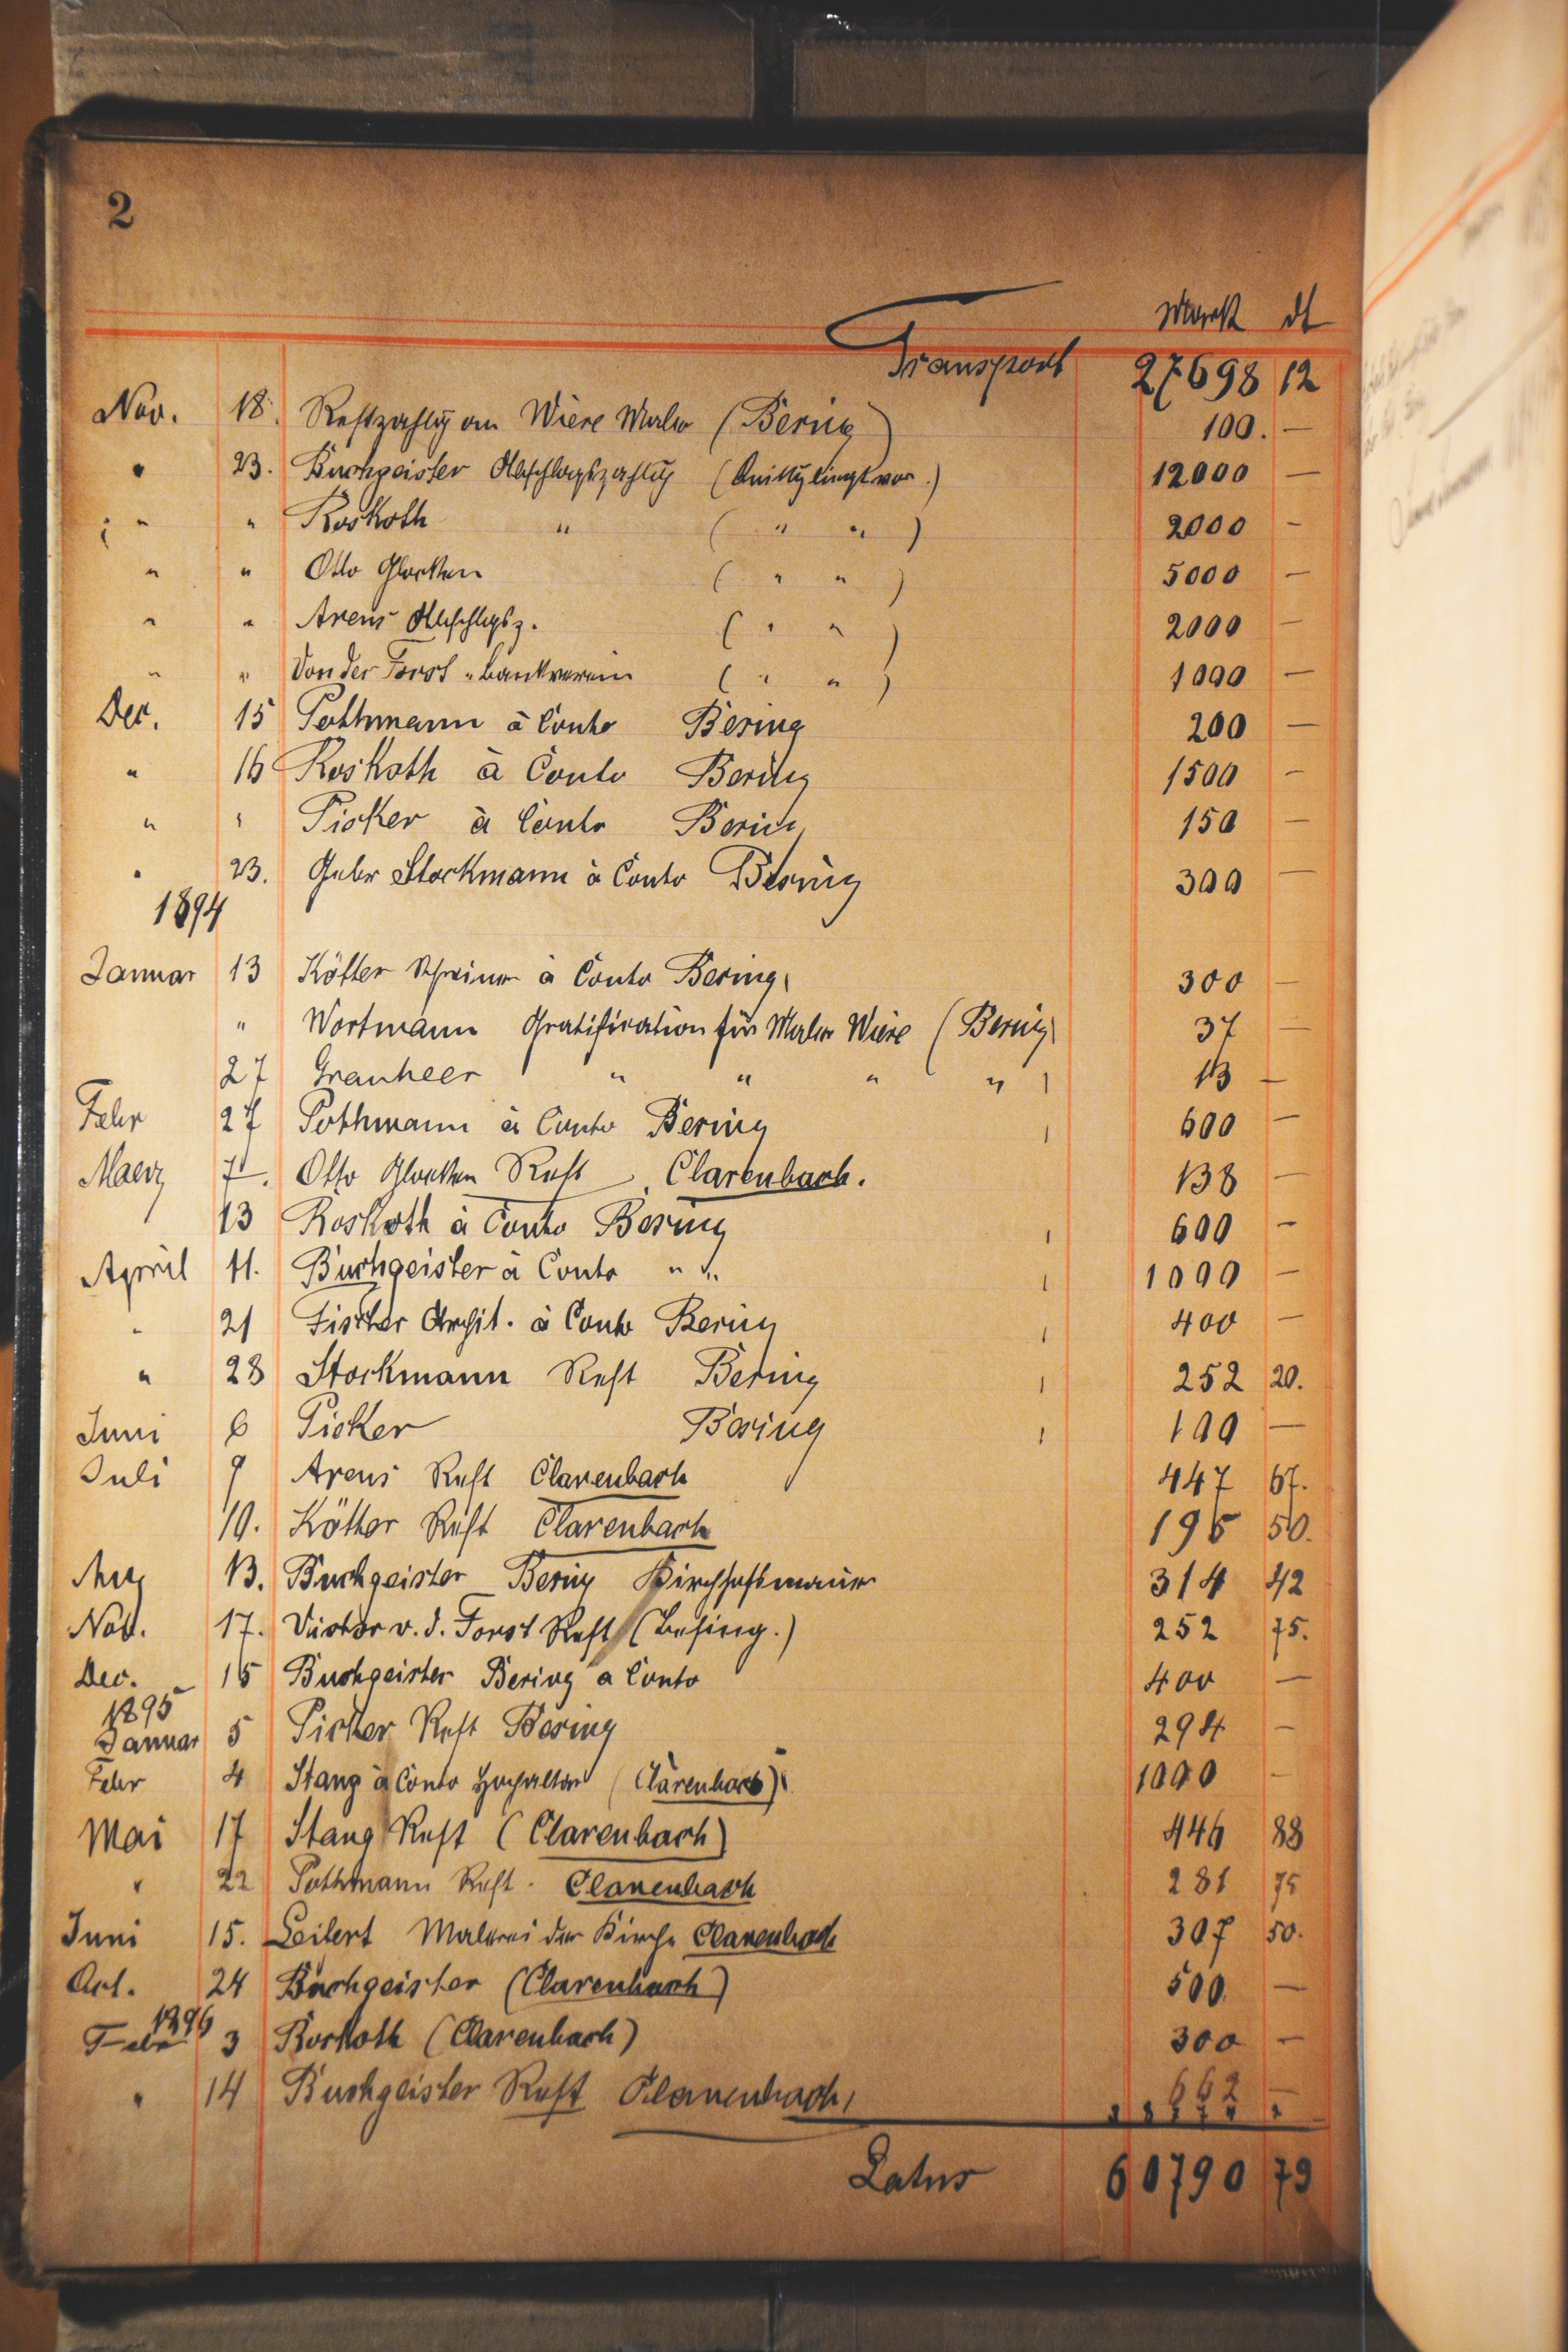 2
Mark df
Transport 27698 12
Nov. 18. Restzahlg an Wiere Maler (Bering) 100. —
" 23. Buchgeister Abschlagszahlg (Quittg liegt vor.) 12000 —
" " Roskoth " ( " " ) 2000 —
" " Otto Glocken ( " " ) 5000 —
" " Arens Abschlgsz. ( " " ) 2000 —
" " Von der Forst " Bankverein ( " " ) 1000 —
Dec. 15 Pothmann à Conto Bering 200 —
" 16 Roskoth à Conto Bering 1500 —
" " Picker à Conto Bering 150 —
" 23. Gebr Stockmann à Conto Bering 300 —
1894
Januar 13 Kötter Schreiner à Conto Bering 300 —
" Wortmann Gratification für Maler Wiere (Bering) 37 —
27 Granheer " " " " 13 —
Febr 27 Pothmann à Conto Bering 600 —
Maerz 7. Otto Glocken Rest Clarenbach. 138 —
13 Roskoth à Conto Bering 600 —
April 11. Buchgeister à Conto " " 1000 —
" 21 Fischer Archit. à Conto Bering 400 —
" 28 Stockmann Rest Bering 252 20.
Juni 6 Picker Bering 100 —
Juli 9 Arens Rest Clarenbach 447 67.
10. Kötter Rest Clarenbach 195 50.
Aug 13. Buchgeister Bering Kirchhofsmauer 314 42
Nov. 17. Victor v. d. Forst Rest 252 75.
Dec. 15 Buchgeister Bering a Conto 400 —
1895
Januar 5 Picker Rest Bering 294 —
Febr 4 Stang à Conto Hochaltar (Clarenbach) 1000 —
Mai 17 Stang Rest (Clarenbach) 446 88
" 22 Pothmann Rest. Clarenbach 281 75
Juni 15. Leilert Malerei der Kirche Clarenbach 307 50.
Oct. 24 Buchgeister (Clarenbach) 500 —
1896
Febr 3 Roskoth (Clarenbach) 300 —
" 14 Buchgeister Rest Clarenbach 662 —
Latus 60790 79